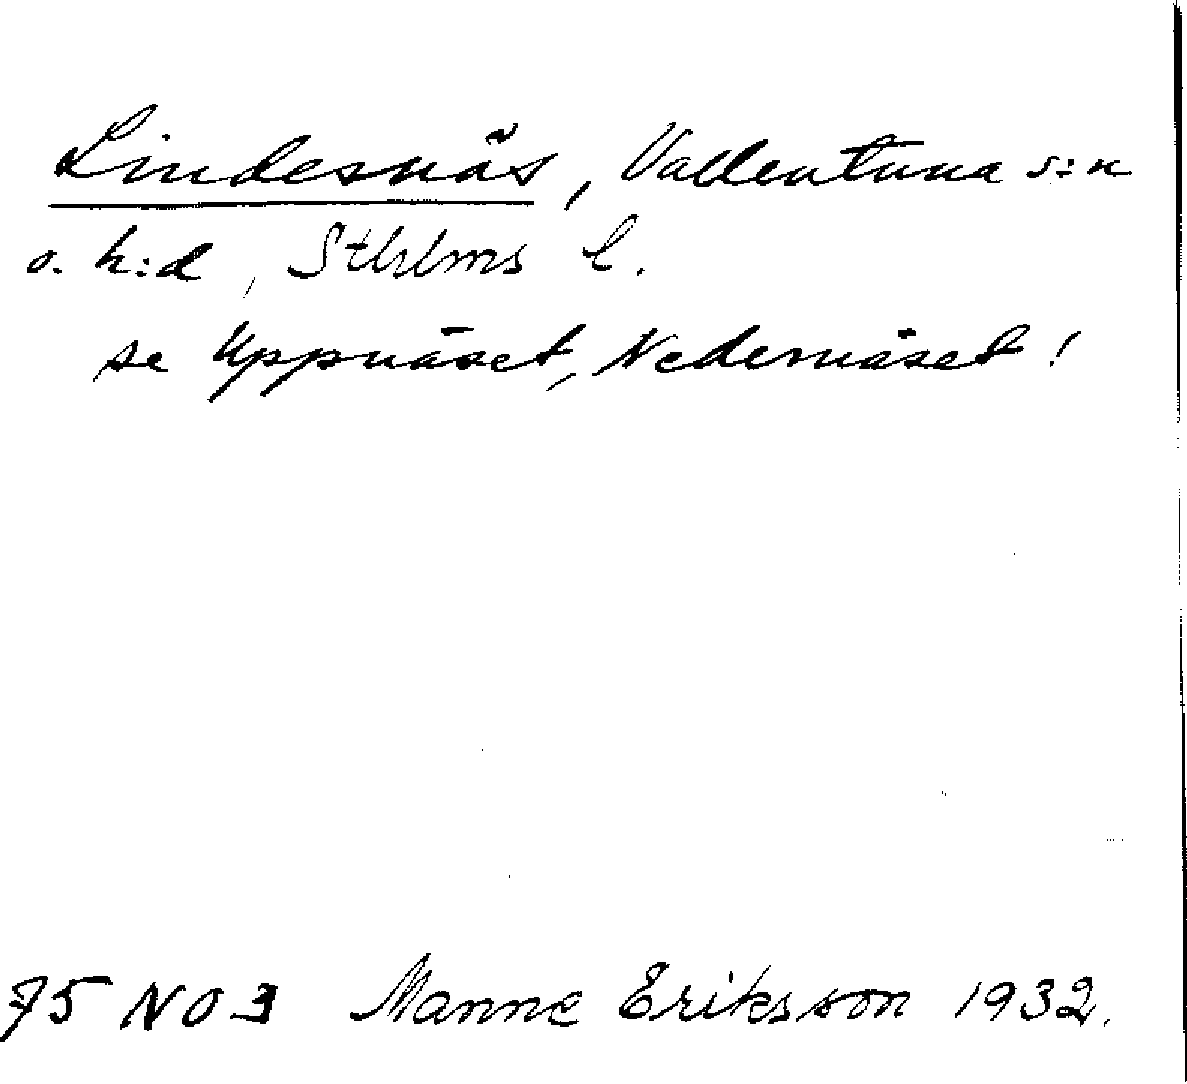 Lindesnäs, Vallentuna s:n
o. h:d, Sthlms l.
se Uppnäset, Nedernäset!
75 NO 3 Manne Eriksson 1932.